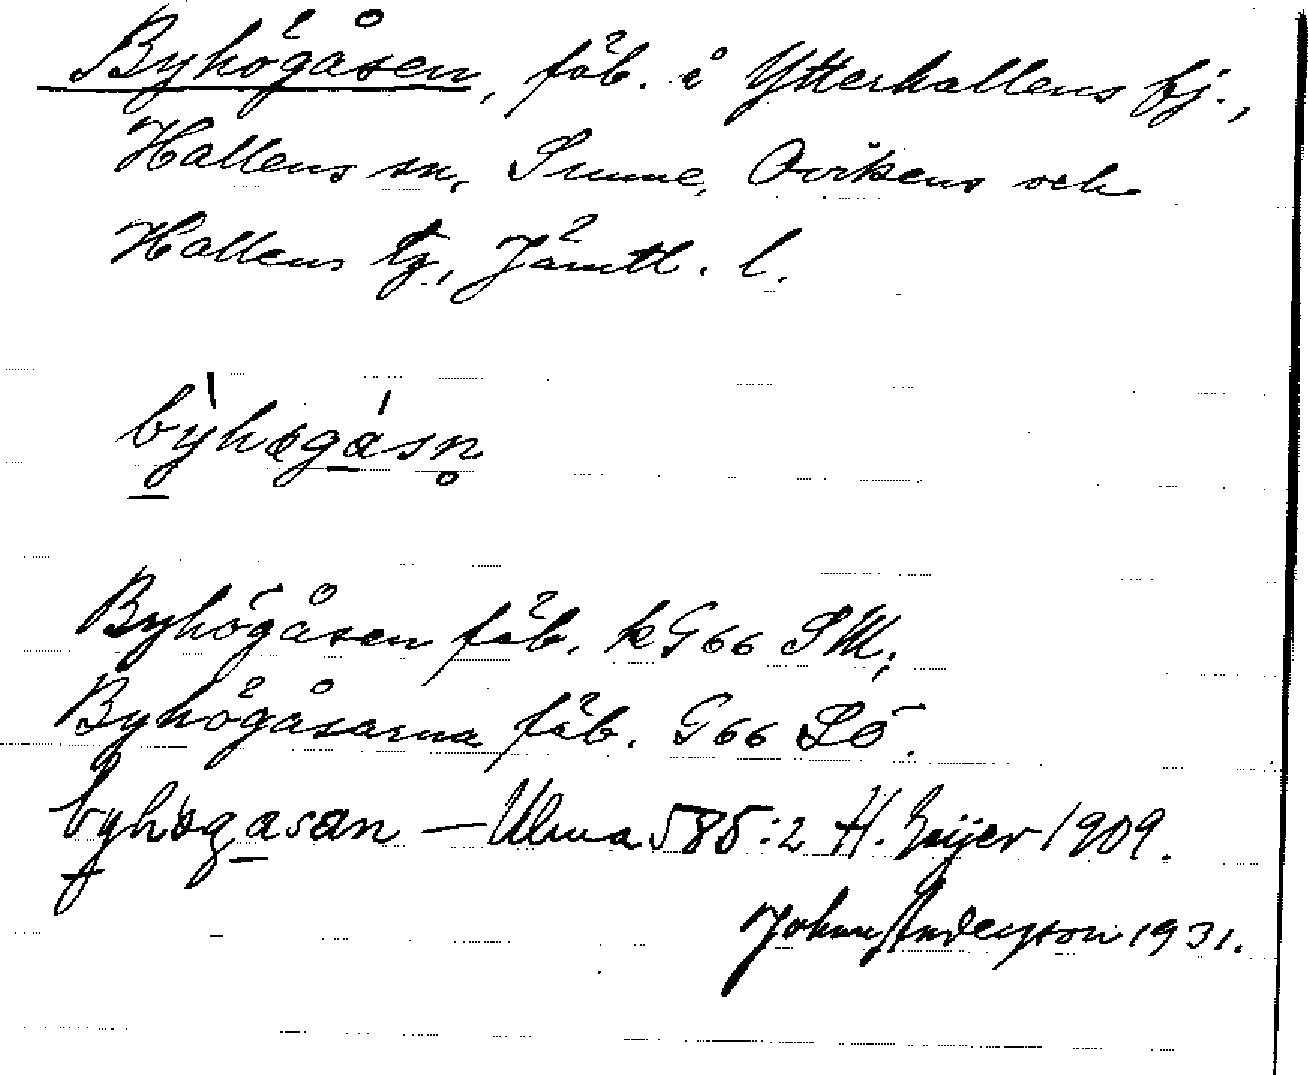 Byhögåsen, fäb. i Ytterhallens bj.,
Hallens sn, Sunne, Ovikens och
Hallens tg., Jämtl. l.
bỳhøgásn̥
Byhögåsen fäb. kG66 SM;
Byhögåsarna fäb. G66 Lö.
byhøgasan — Ulma 585:2 H. Geijer 1909.
Johan Anderson 1931.